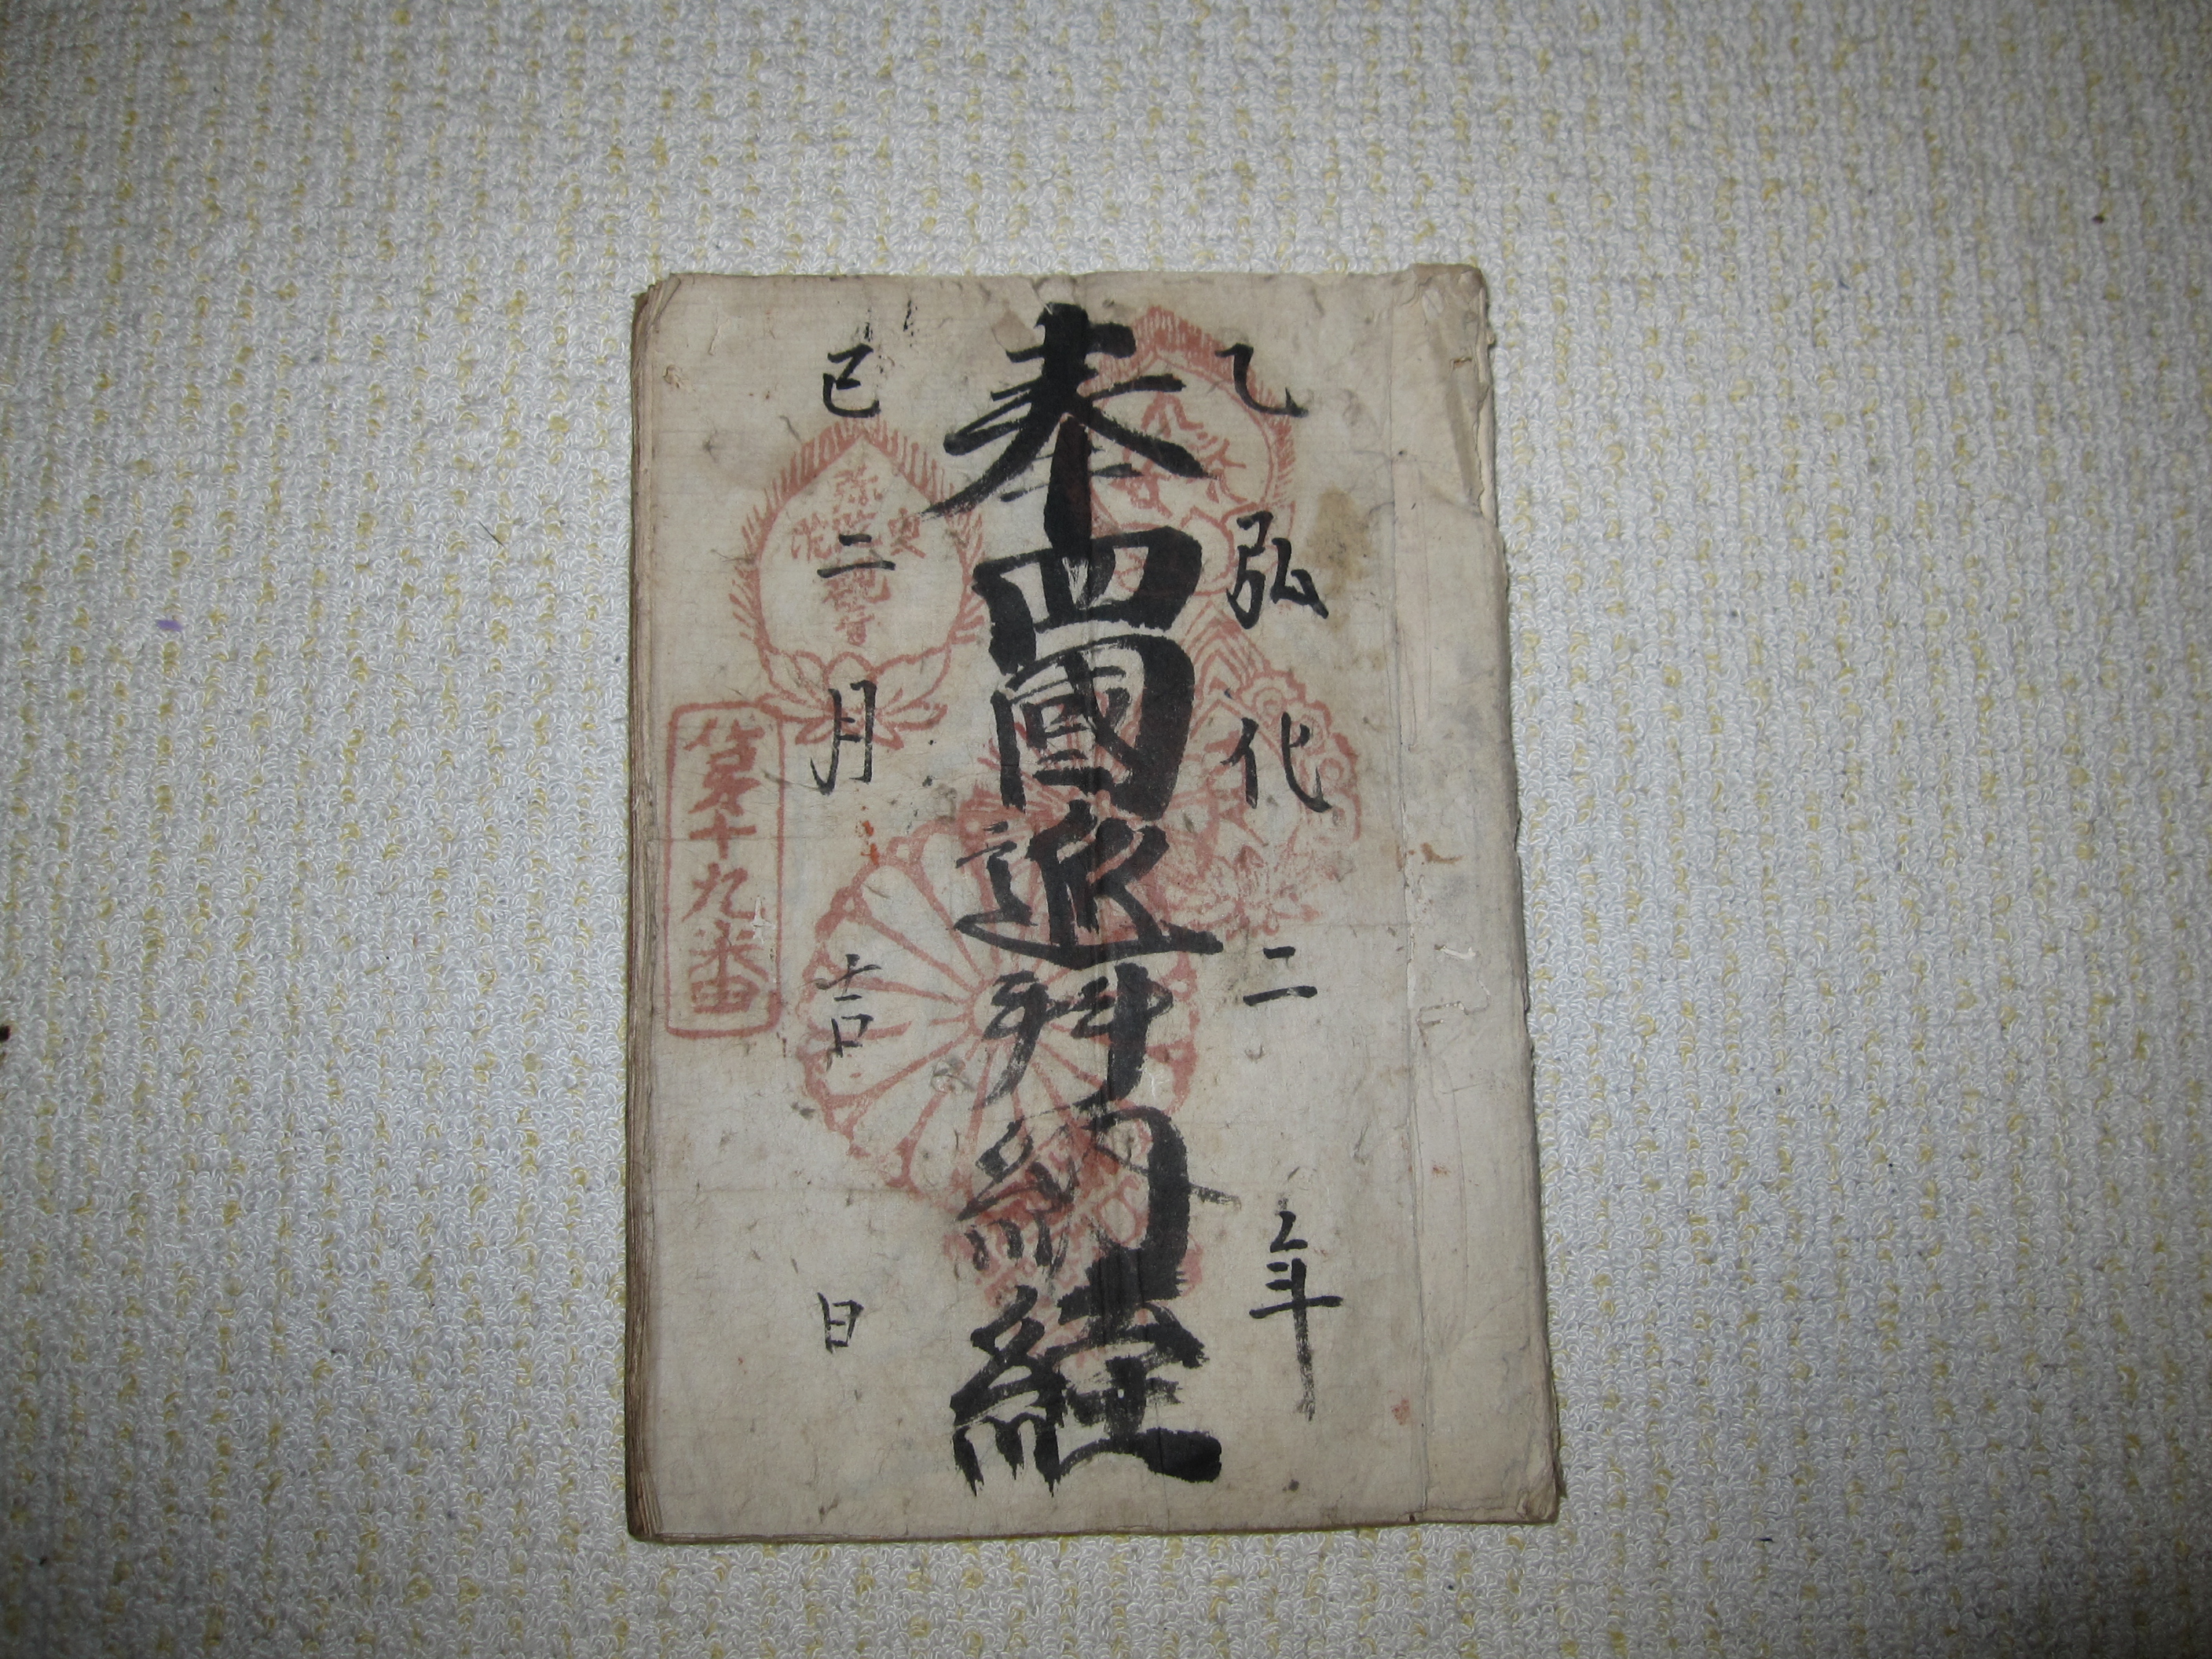 乙 弘化二年
奉四國遍拜納経
巳 二月吉日
第十九番